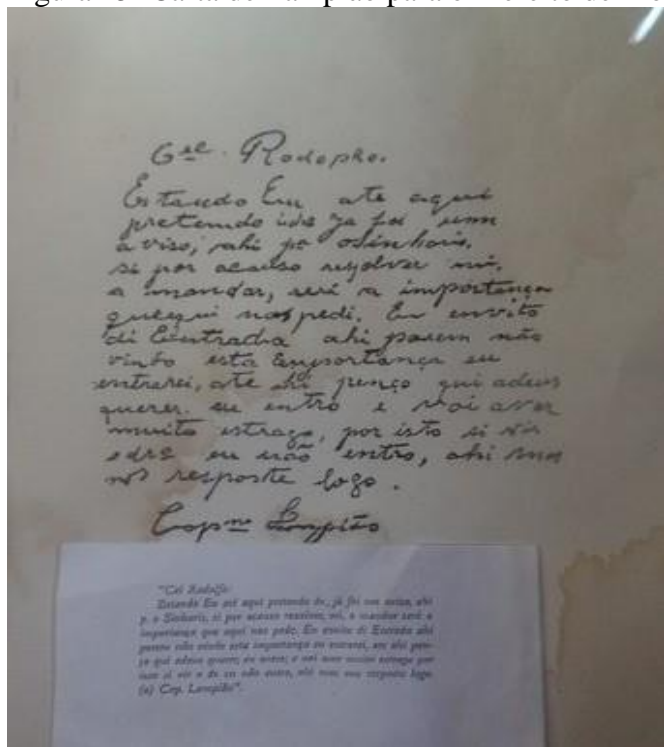 Cel. Rodopho.
Estando Eu ate aqui
pretendo drº ja foi um
aviso, ahi pº o Sinhoris,
si por acauso rezolver mi,
a mandar, será a importança
que aqui nos pedi. Eu envito
di Entrada ahi porem não
vindo esta Emportança eu
entrarei, ate ahi penço qui adeus
querer. eu entro e vai aver
muito estrago, por isto si vir
o drº eu não entro, ahi mas
nos resposte logo.
Capm Lampião
"Cel Rodolfo
Estando Eu até aqui pretendo dr., já foi um aviso, ahi
p. o Sinhoris, si por acauso resolver, mi, a mandar será a
importança que aqui nos pede, Eu envito di Entrada ahi
porem não vindo esta importança eu entrarei, até ahi pen-
ço qui adeus querer, eu entro; e vai aver muito estrago por
isto si vir o dr. eu não entro, ahi nos resposte logo.
(a) Cap. Lampião".